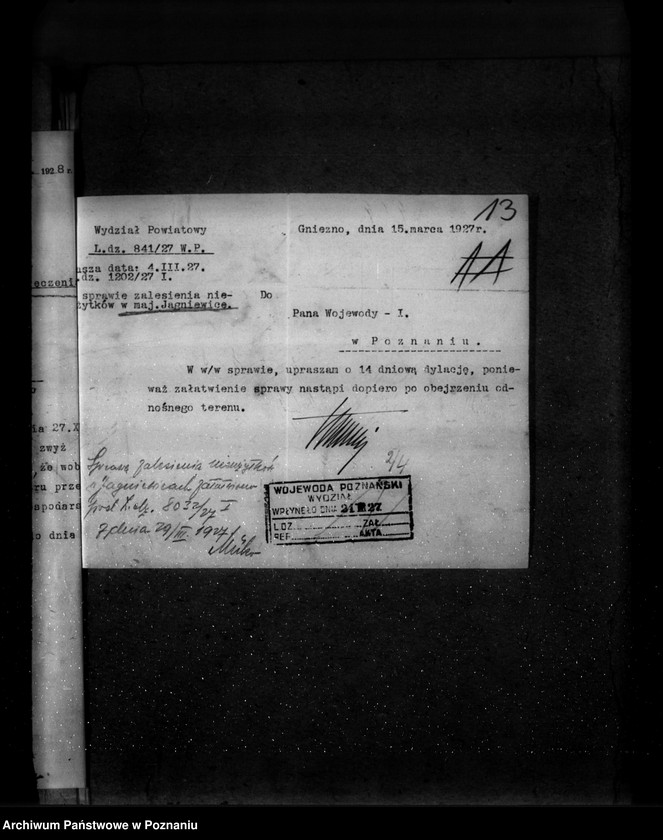 192 8 r.
eczeni
ia 27.X
zwyż
że wob
ru prze
spodars
o dnia
13
Wydział Powiatowy
L.dz. 841/27 W.P.
Gniezno, dnia 15.marca 1927r.
asza data: 4.III.27.
dz. 1202/27 I.
sprawie zalesienia nie-
żytków w maj.Jagniewice.
Do
Pana Wojewody - I.
w Poznaniu.
W w/w sprawie, upraszam o 14 dniową dylację, ponie-
waż załatwienie sprawy nastąpi dopiero po obejrzeniu od-
nośnego terenu.
2/4
Sprawa zalesienia nieużytków
w Jagniewicach załatwiono
pod L.dz. 8032/27 I
z dnia 29/III. 1927 r.
WOJEWODA POZNAŃSKI
WYDZIAŁ
WPŁYNĘŁO DNIA 21 III 27
L.DZ. ZAŁ.
REF. AKTA
Archiwum Państwowe w Poznaniu